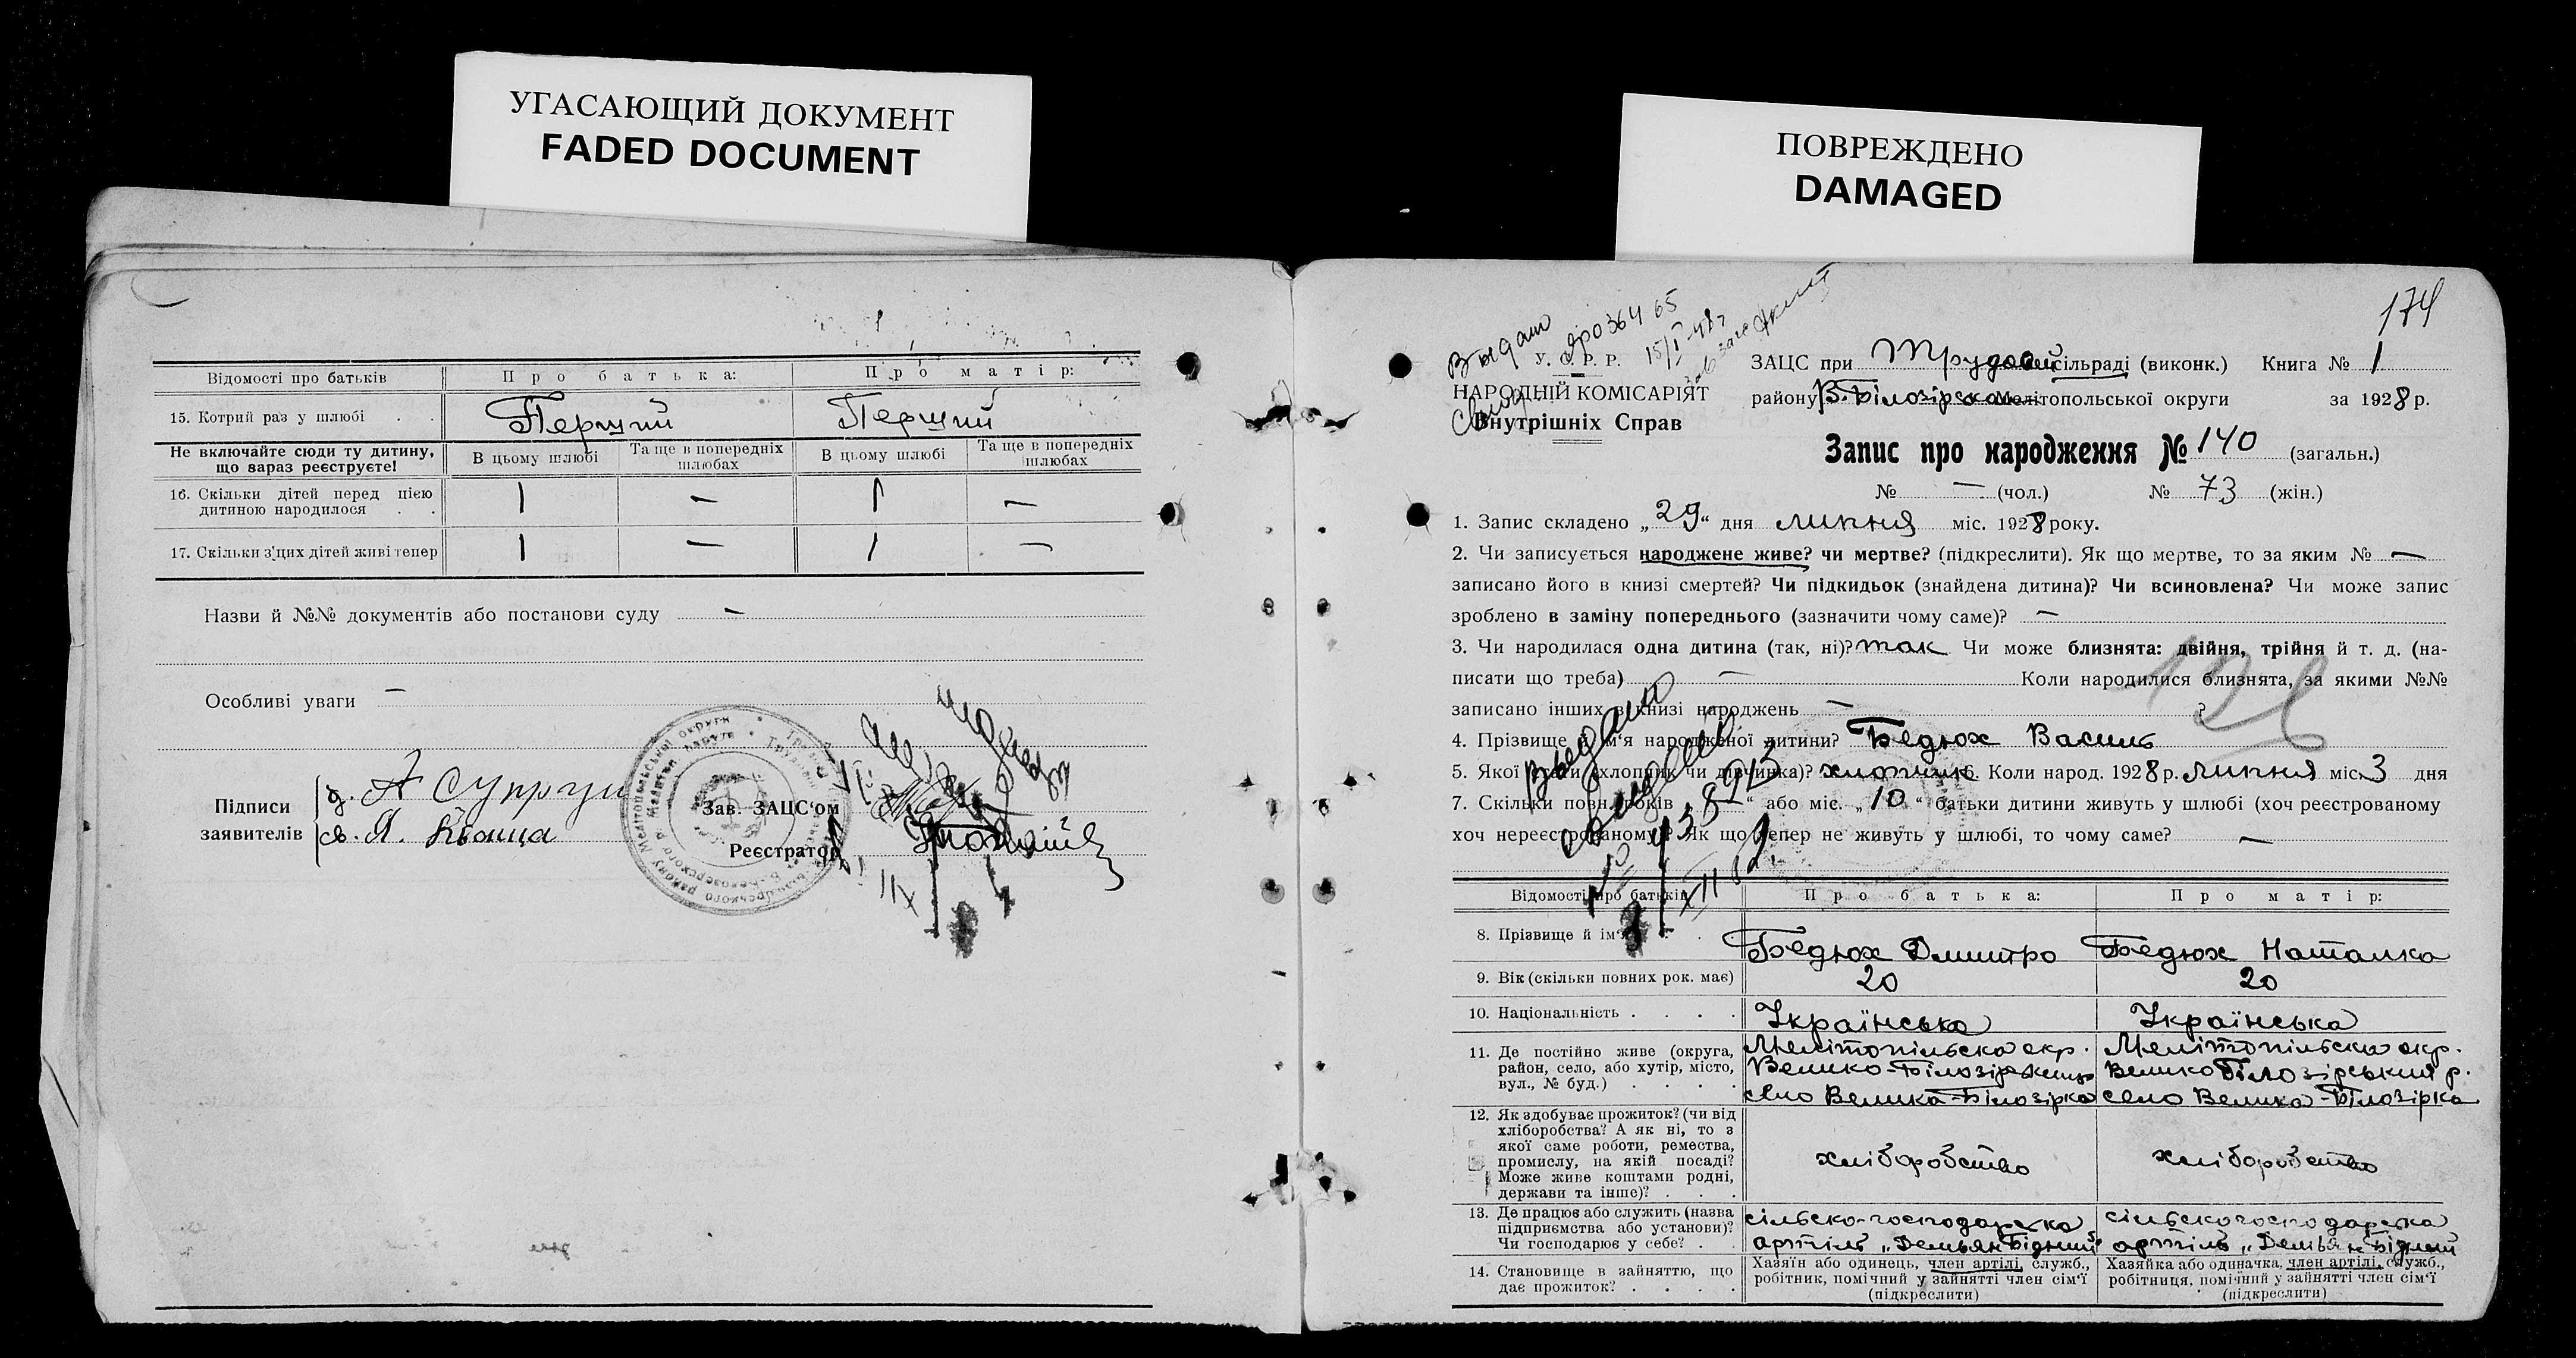 УГАСАЮЩИЙ ДОКУМЕНТ
FADED DOCUMENT
ПОВРЕЖДЕНО
DAMAGED
Відомості про батьків Про батька: Про матір:
15. Котрий раз у шлюбі . . Перший Перший
Не включайте сюди ту дитину, що вараз реєструєте! В цьому шлюбі Та ще в попередніх шлюбах В цьому шлюбі Та ще в попередніх шлюбах
16. Скільки дітей перед цією дитиною народилося . . 1 — 1 —
17. Скільки з'цих дітей живі тепер 1 — 1 —
Назви й №№ документів або постанови суду —
Особливі уваги —
Підписи заявителів
д. А Супрун
св. Я. Кваша
Зав. ЗАЦС'ом
Реєстратор
174
Выдано
15/I-48г
У. С. Р. Р.
НАРОДНІЙ КОМІСАРІЯТ
Внутрішніх Справ
ЗАЦС при Трудовій сільраді (виконк.) Книга № 1
району В.-Білозірском Мелітопольської округи за 1928 р.
Запис про народження № 140 (загальн.)
№ — (чол.) № 73 (жін.)
1. Запис складено „29“ дня липня міс. 1928 року.
2. Чи записується народжене живе? чи мертве? (підкреслити). Як що мертве, то за яким № —
записано його в книзі смертей? Чи підкидьок (знайдена дитина)? Чи всиновлена? Чи може запис
зроблено в заміну попереднього (зазначити чому саме)? —
3. Чи народилася одна дитина (так, ні)? так Чи може близнята: двійня, трійня й т. д. (на-
писати що треба) — Коли народилися близнята, за якими №№
записано інших в книзі народжень — ?
4. Прізвище й ім'я народженої дитини? Бедюх Василь
5. Якої статі (хлопчик чи дівчинка)? хлопчик 6. Коли народ. 1928 р. липня міс. 3 дня
7. Скільки повн. років „ “ або міс. „10“ батьки дитини живуть у шлюбі (хоч реєстрованому
хоч нереєстрованому)? Як що тепер не живуть у шлюбі, то чому саме? —
Выдано
Відомості про батьків Про батька: Про матір:
8. Прізвище й ім'я . . Бедюх Дмитро Бедюх Наталка
9. Вік (скільки повних рок. має) 20 20
10. Національність . . . . Українська Українська
11. Де постійно живе (округа, район, село, або хутір, місто, вул., № буд.) . . . .
Мелітопільска окр. Мелітопільска окр.
Велико-Білозірський Велико Білозірський р.
село Велика-Білозірка село Велика-Білозірка
12. Як здобуває прожиток? (чи від хліборобства? А як ні, то з якої саме роботи, ремества, промислу, на якій посаді? Може живе коштами родні, держави та інше)? . . .
хліборобство хліборобство
13. Де працює або служить (назва підприємства або установи)? Чи господарює у себе? . .
сільско-господарска сільскогосподарска
артіль „Демьян Бідний“ артіль „Демьян Бідний
14. Становище в зайняттю, що дає прожиток? . . . .
Хазяїн або одинець, член артілі, служб., робітник, помічний у зайнятті член сім'ї (підкреслити)
Хазяйка або одиначка, член артілі, служб., робітниця, помічний у зайнятті член сім'ї (підкреслити)